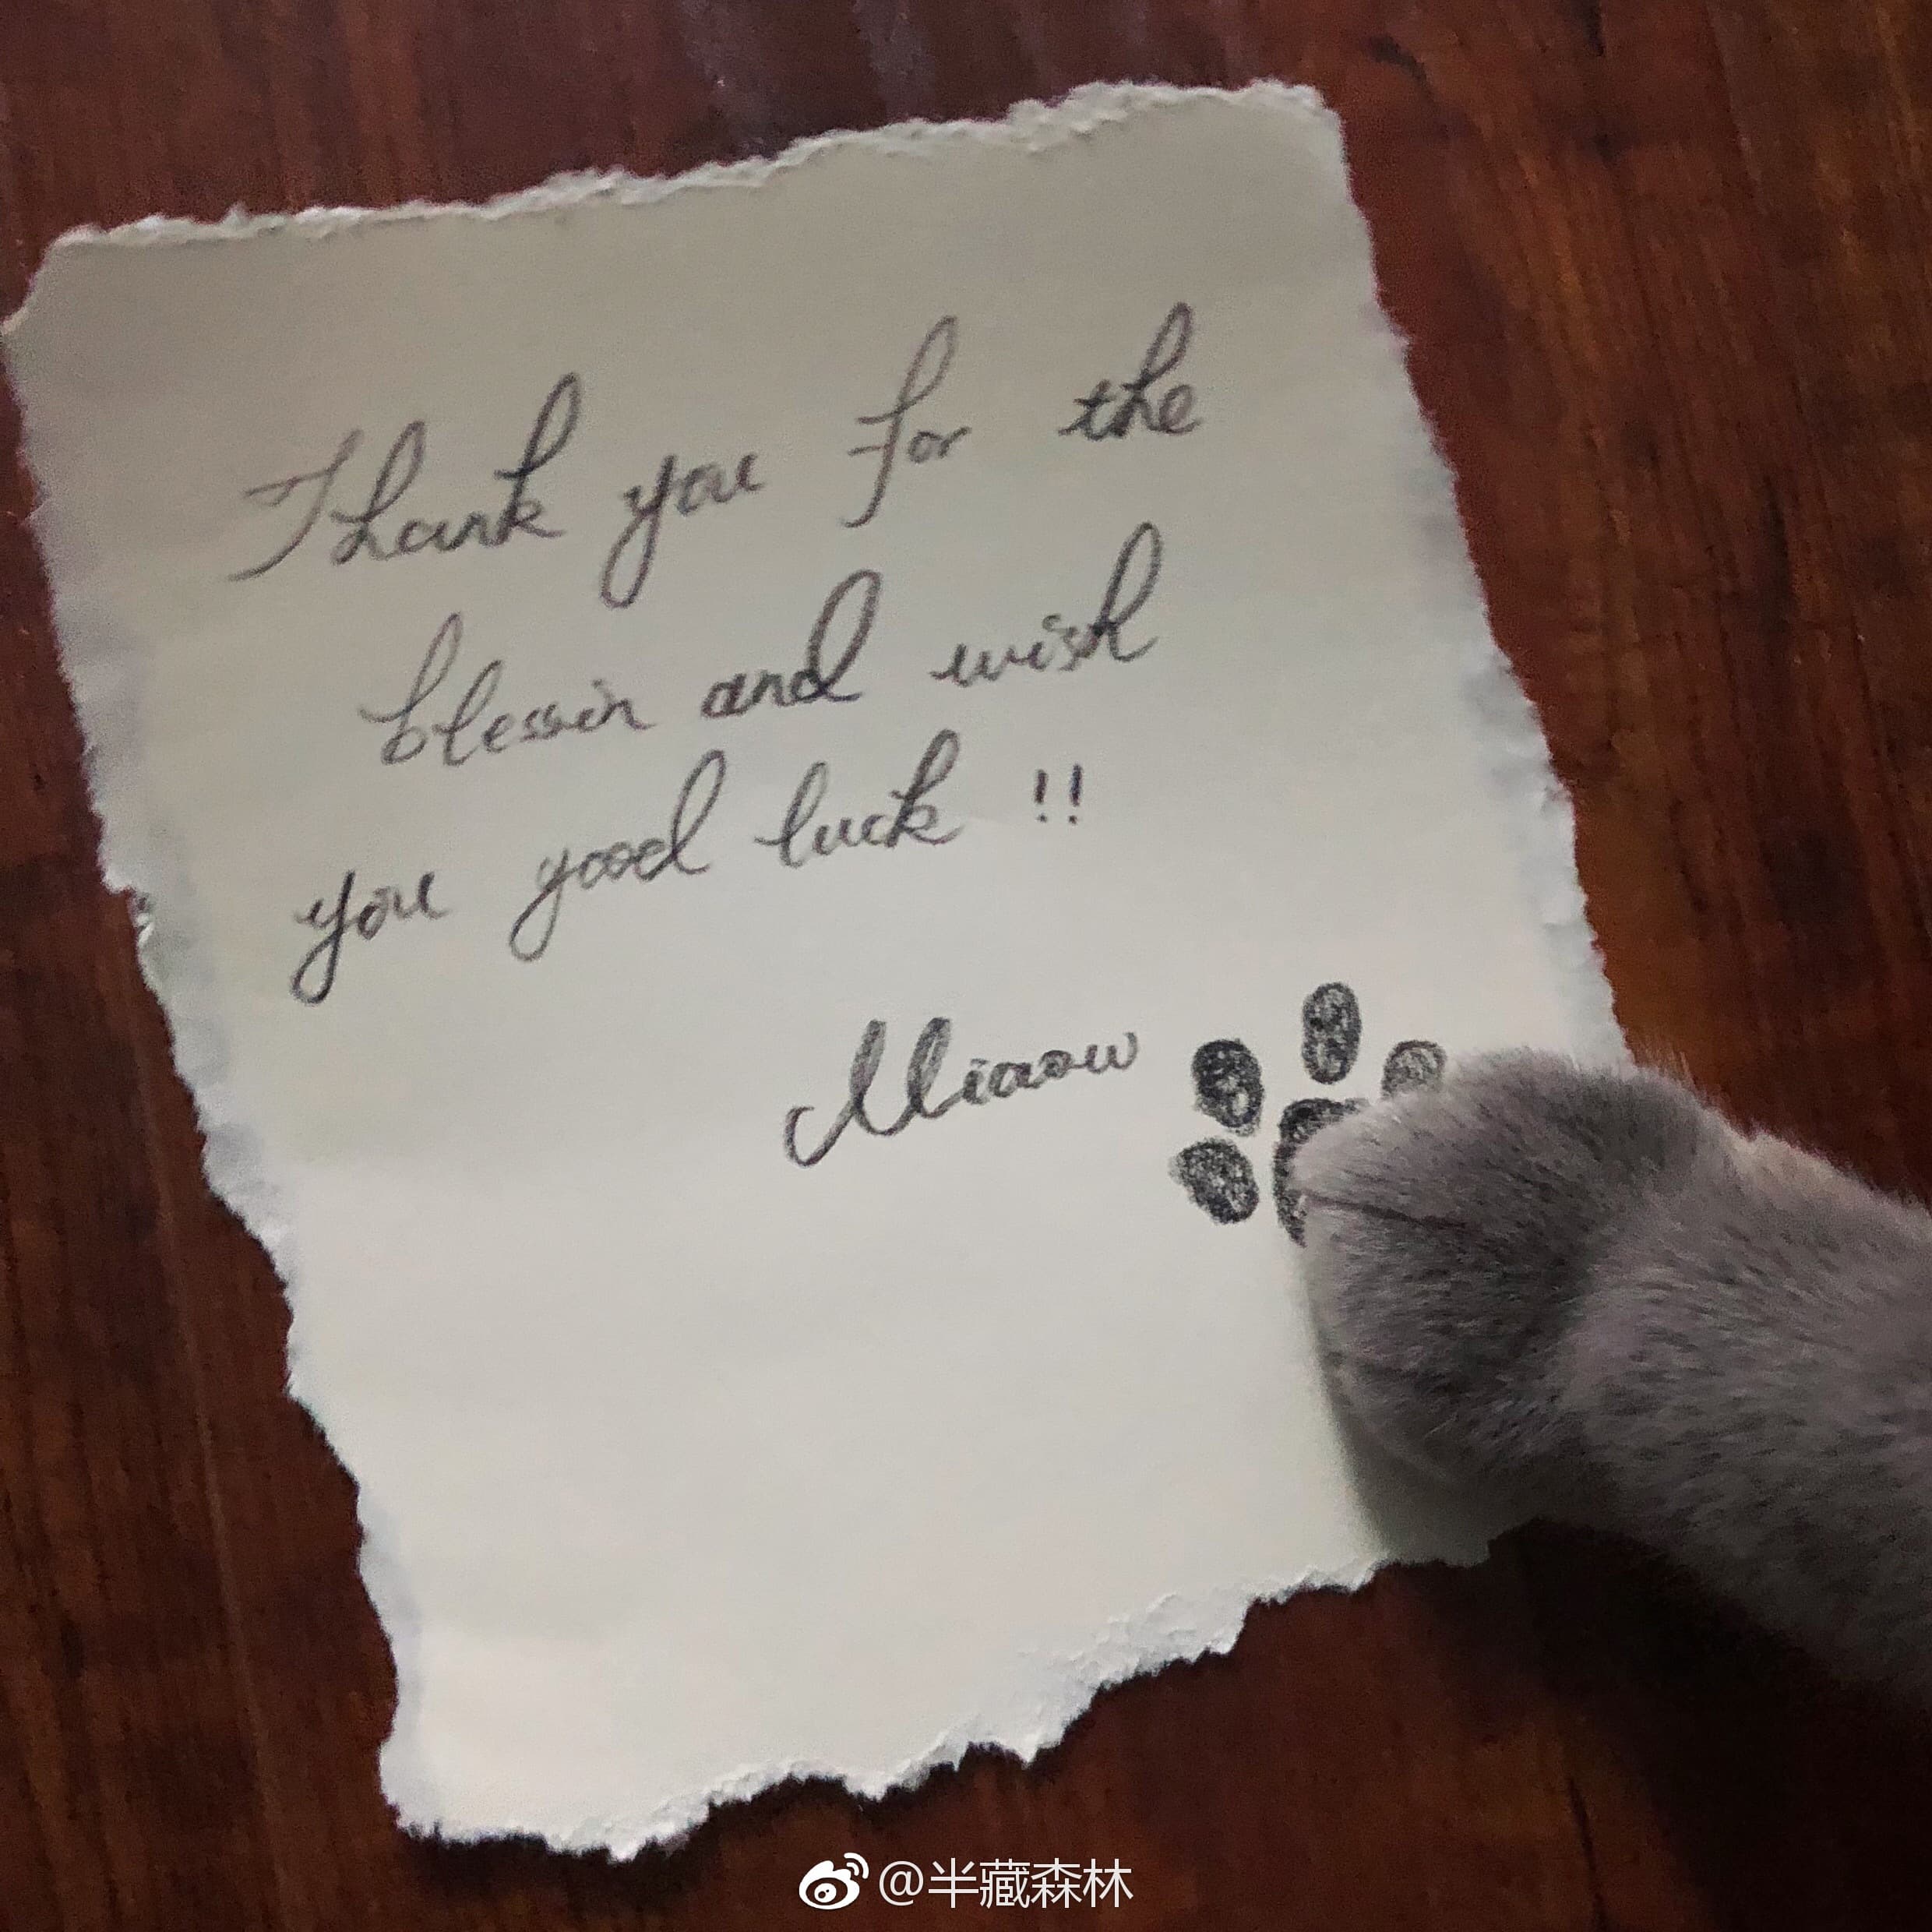 Thank you for the
blessin and wish
you good luck !!
Miaow
@半藏森林